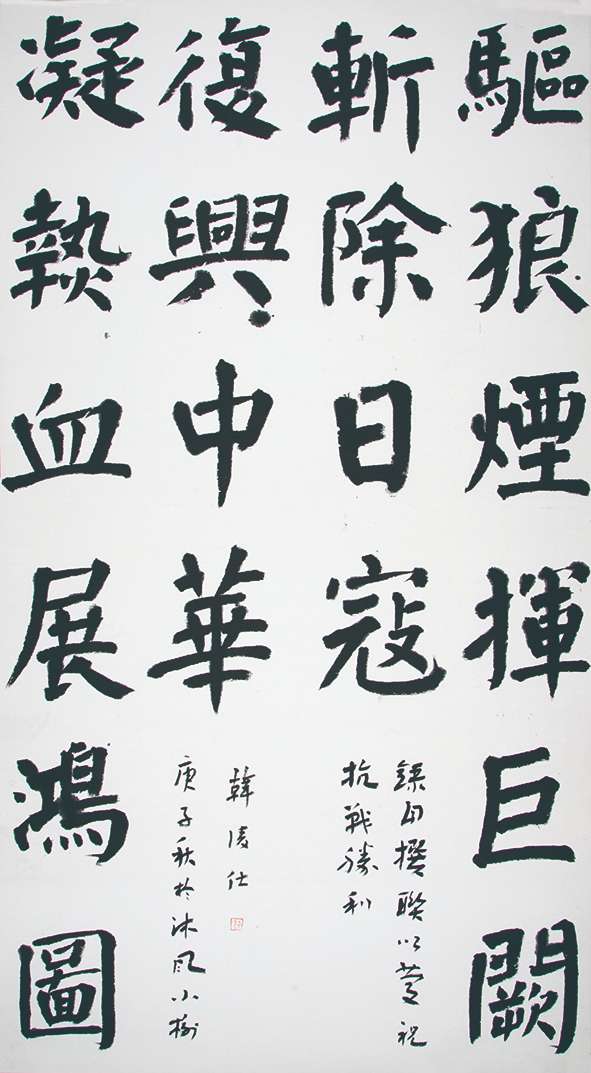 驅狼煙揮巨闕
斬除日寇
錄自撰聯以慶祝
抗戰勝利
凝熱血展鴻圖
復興中華
庚子秋於沐風小榭
韓凌仕